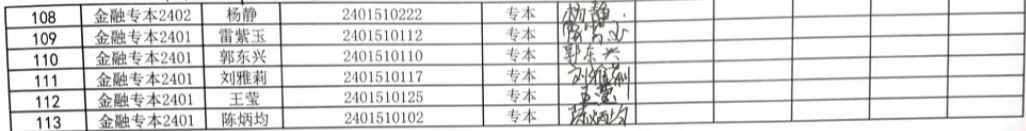 108 金融专本2402 杨静 2401510222 专本 杨静
109 金融专本2401 雷紫玉 2401510112 专本 雷紫玉
110 金融专本2401 郭东兴 2401510110 专本 郭东兴
111 金融专本2401 刘雅莉 2401510117 专本 刘雅莉
112 金融专本2401 王莹 2401510125 专本 王莹
113 金融专本2401 陈炳均 2401510102 专本 陈炳均